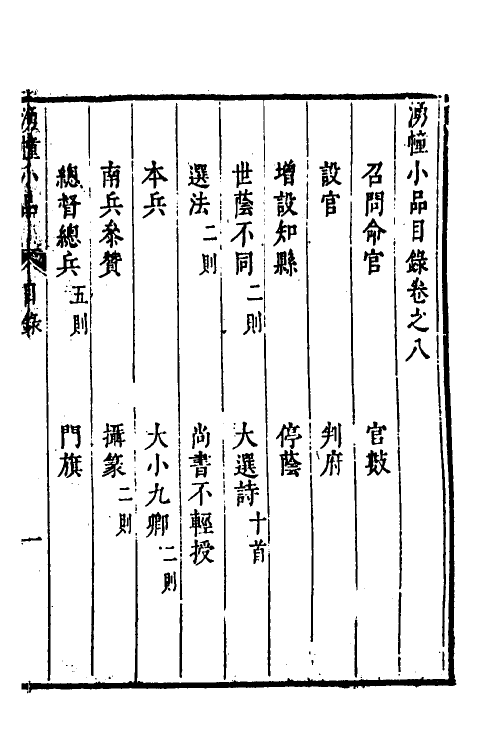 湧幢小品目錄卷之八
召問命官　官數
設官　判府
增設知縣　停蔭
世蔭不同二則　大選詩十首
選法二則　尚書不輕授
本兵　大小九卿二則
南兵叅贊　攝篆二則
總督總兵五則　門旗
湧幢小品　目錄　一